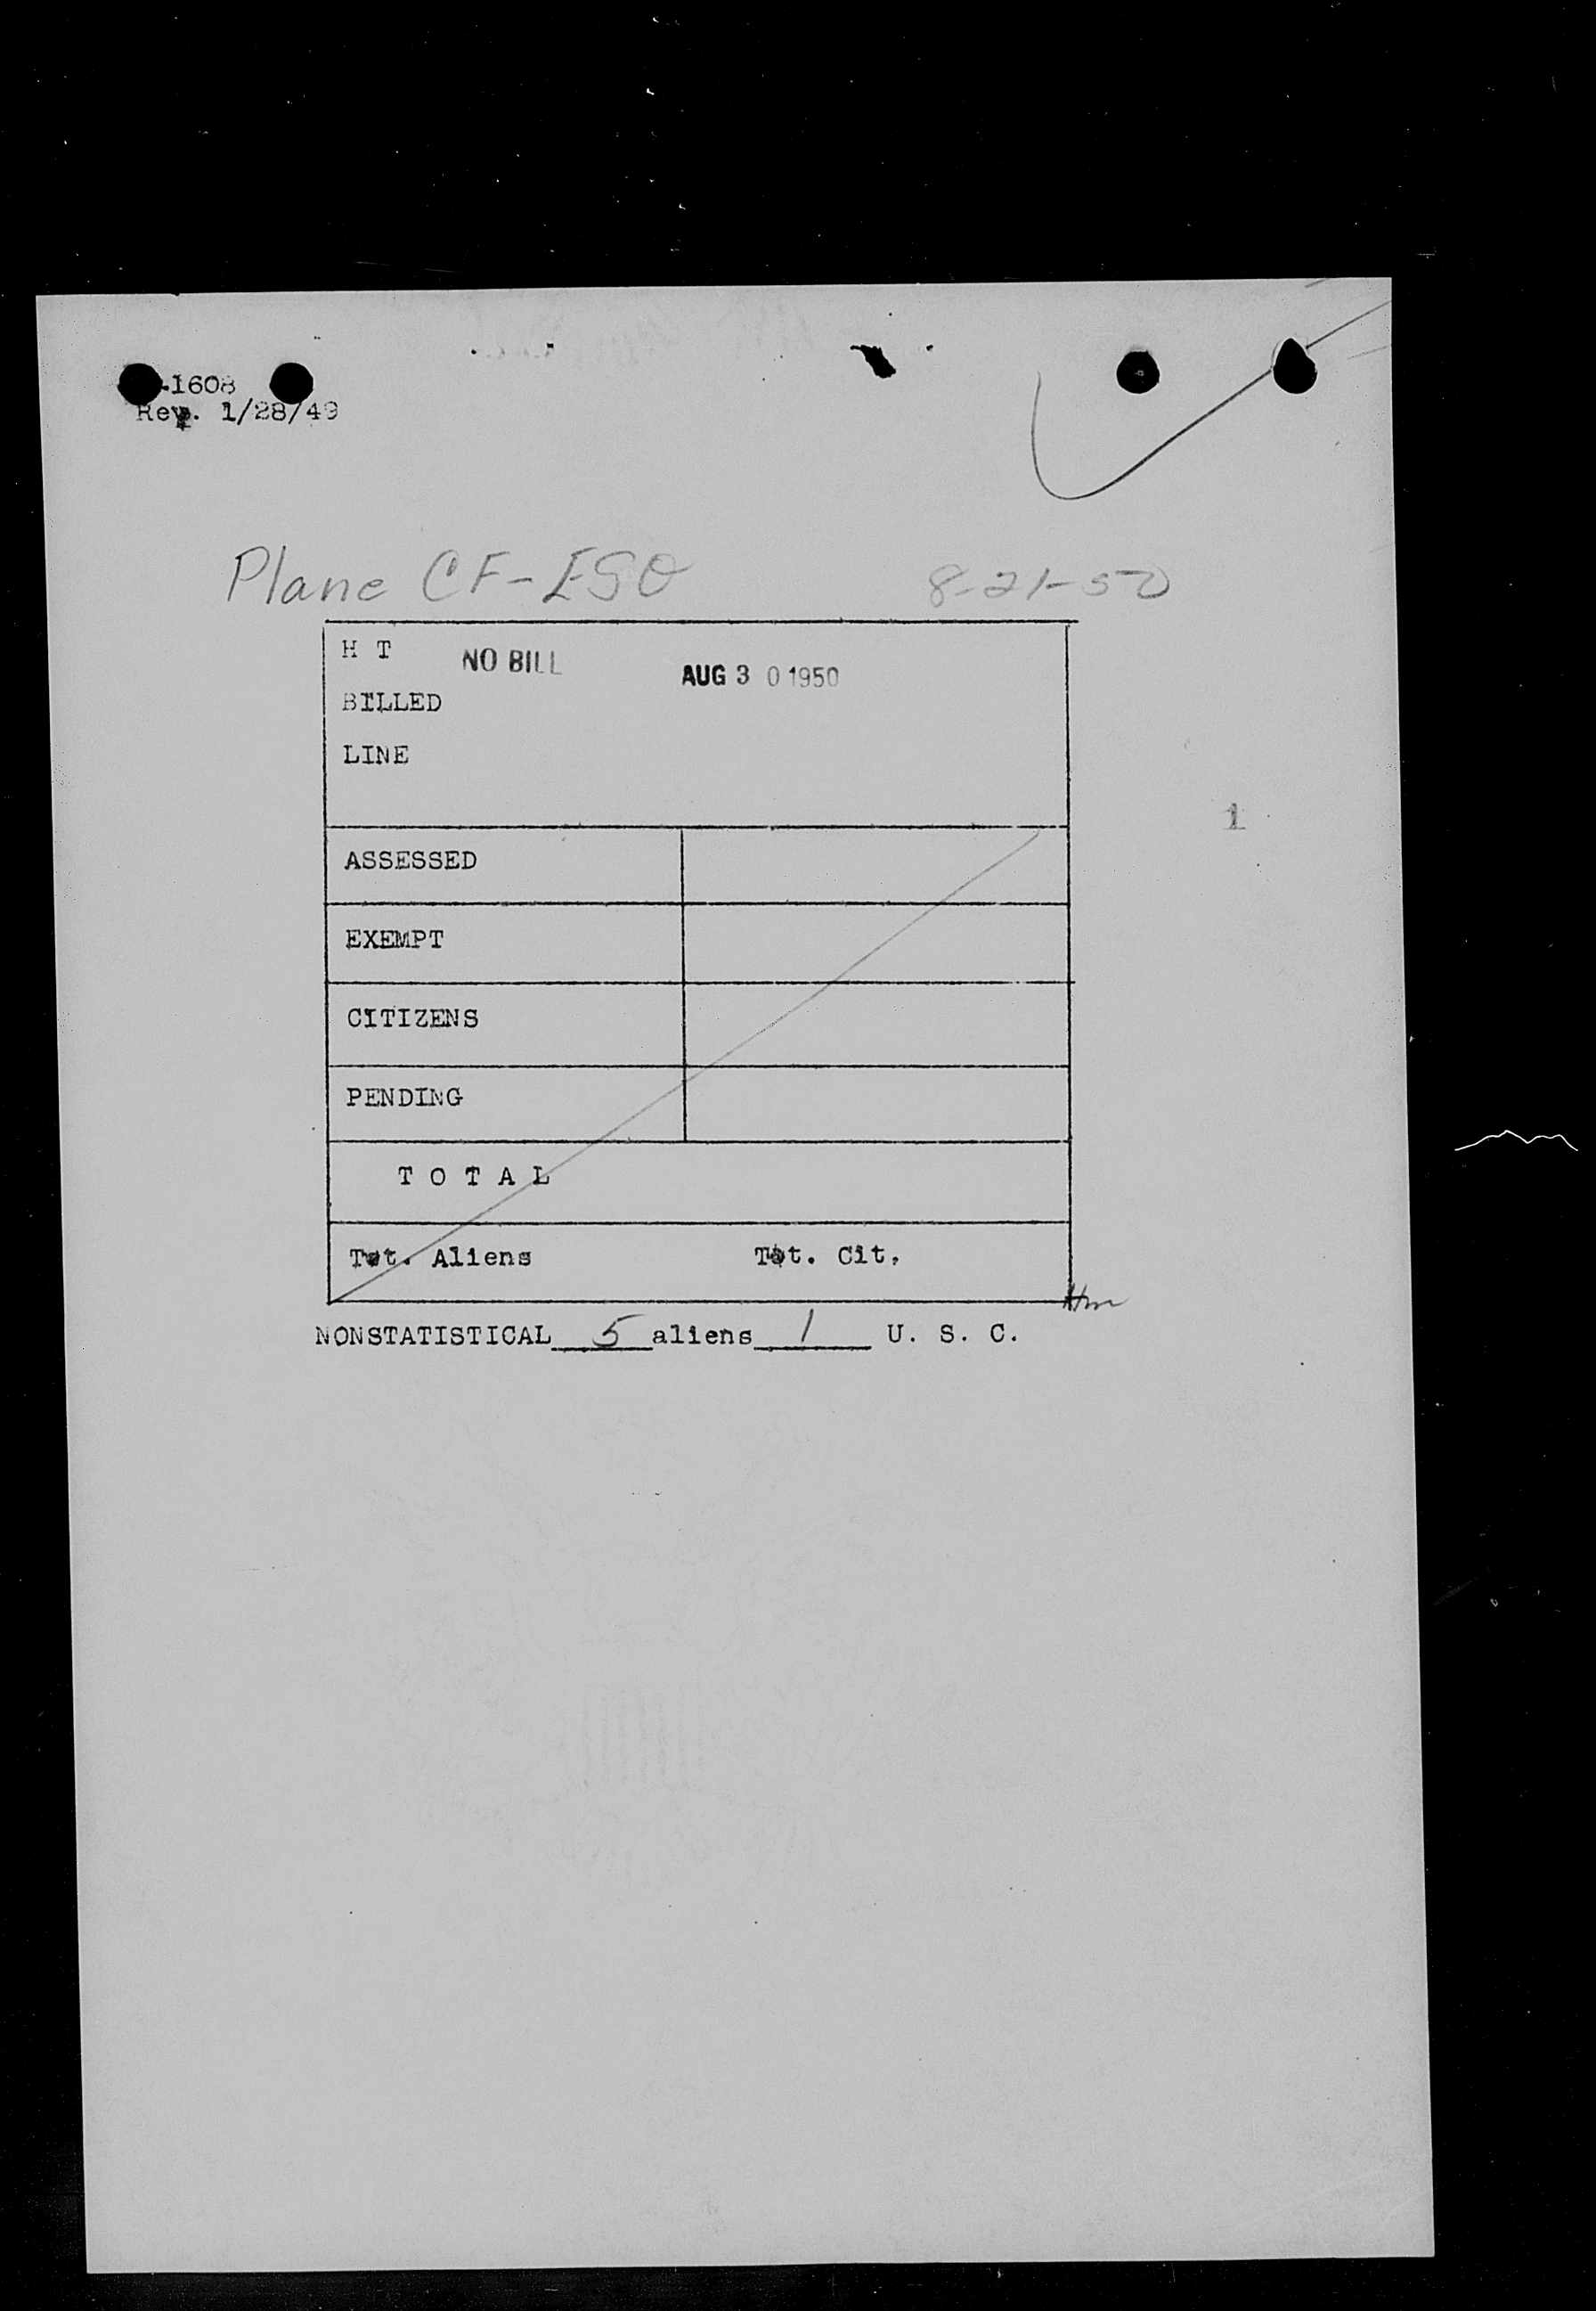 .1608
Rev. 1/28/49
Plane CF-ESO 8-21-50
H T NO BILL AUG 3 0 1950
BILLED
LINE
1
ASSESSED
EXEMPT
CITIZENS
PENDING
T O T A L
Tot. Aliens Tot. Cit.
NONSTATISTICAL 5 aliens 1 U. S. C.